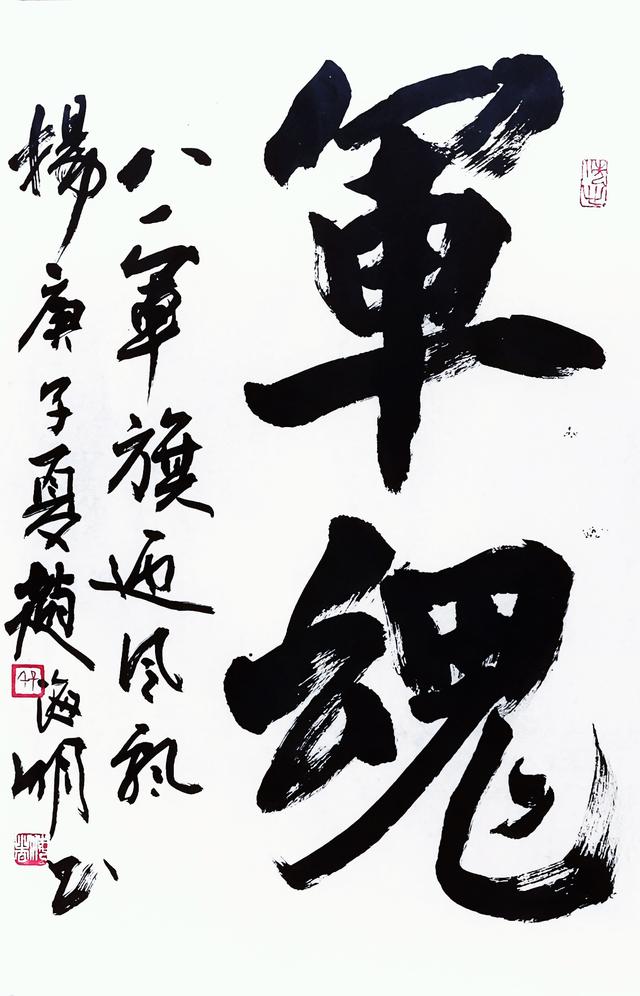 軍魂
八一軍旗迎风飘
揚庚子夏趙海明书